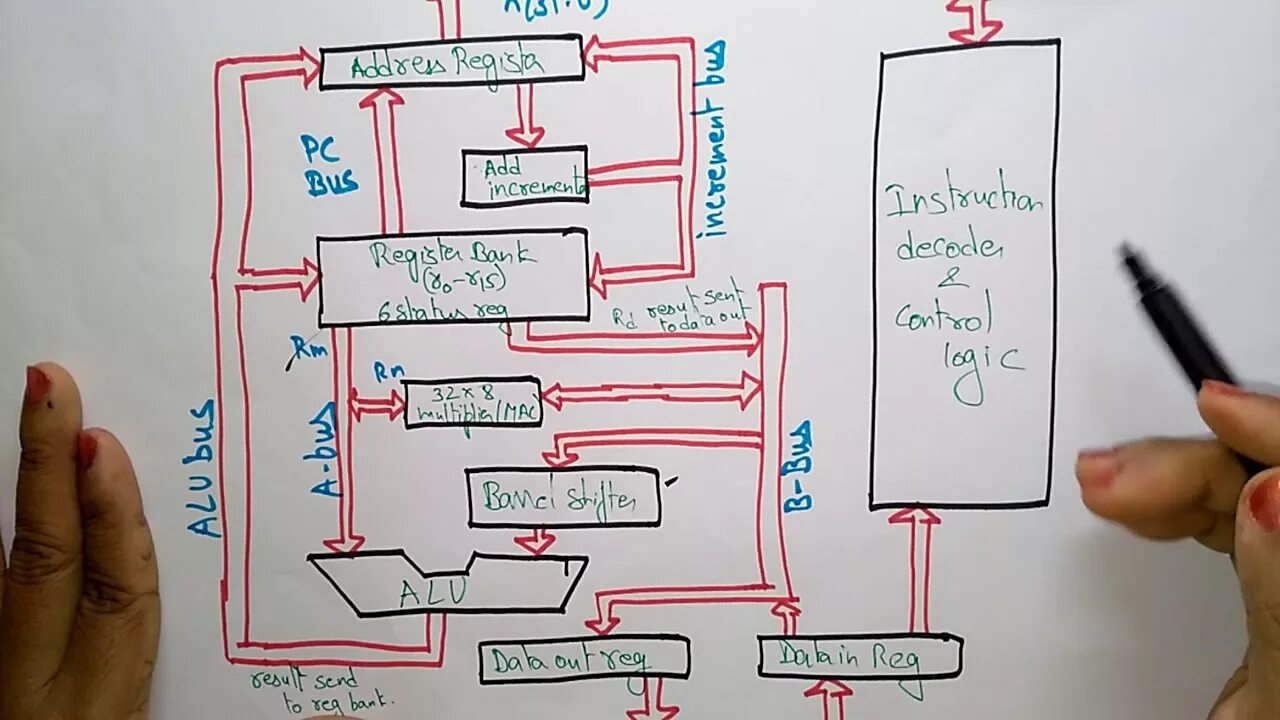 A(31:0)
Address Regista
increment bus
PC
BUS
Add
incrementa
Register Bank
(r0-r15)
6 status reg
Rd result sent
to data out
Rm
Rn
32x8
multiplier/MAC
ALU bus
A-bus
B-Bus
Barrel Shifter
ALU
Data out reg
Data in Reg
result send
to reg bank.
Instruction
decoder
&
Control
logic